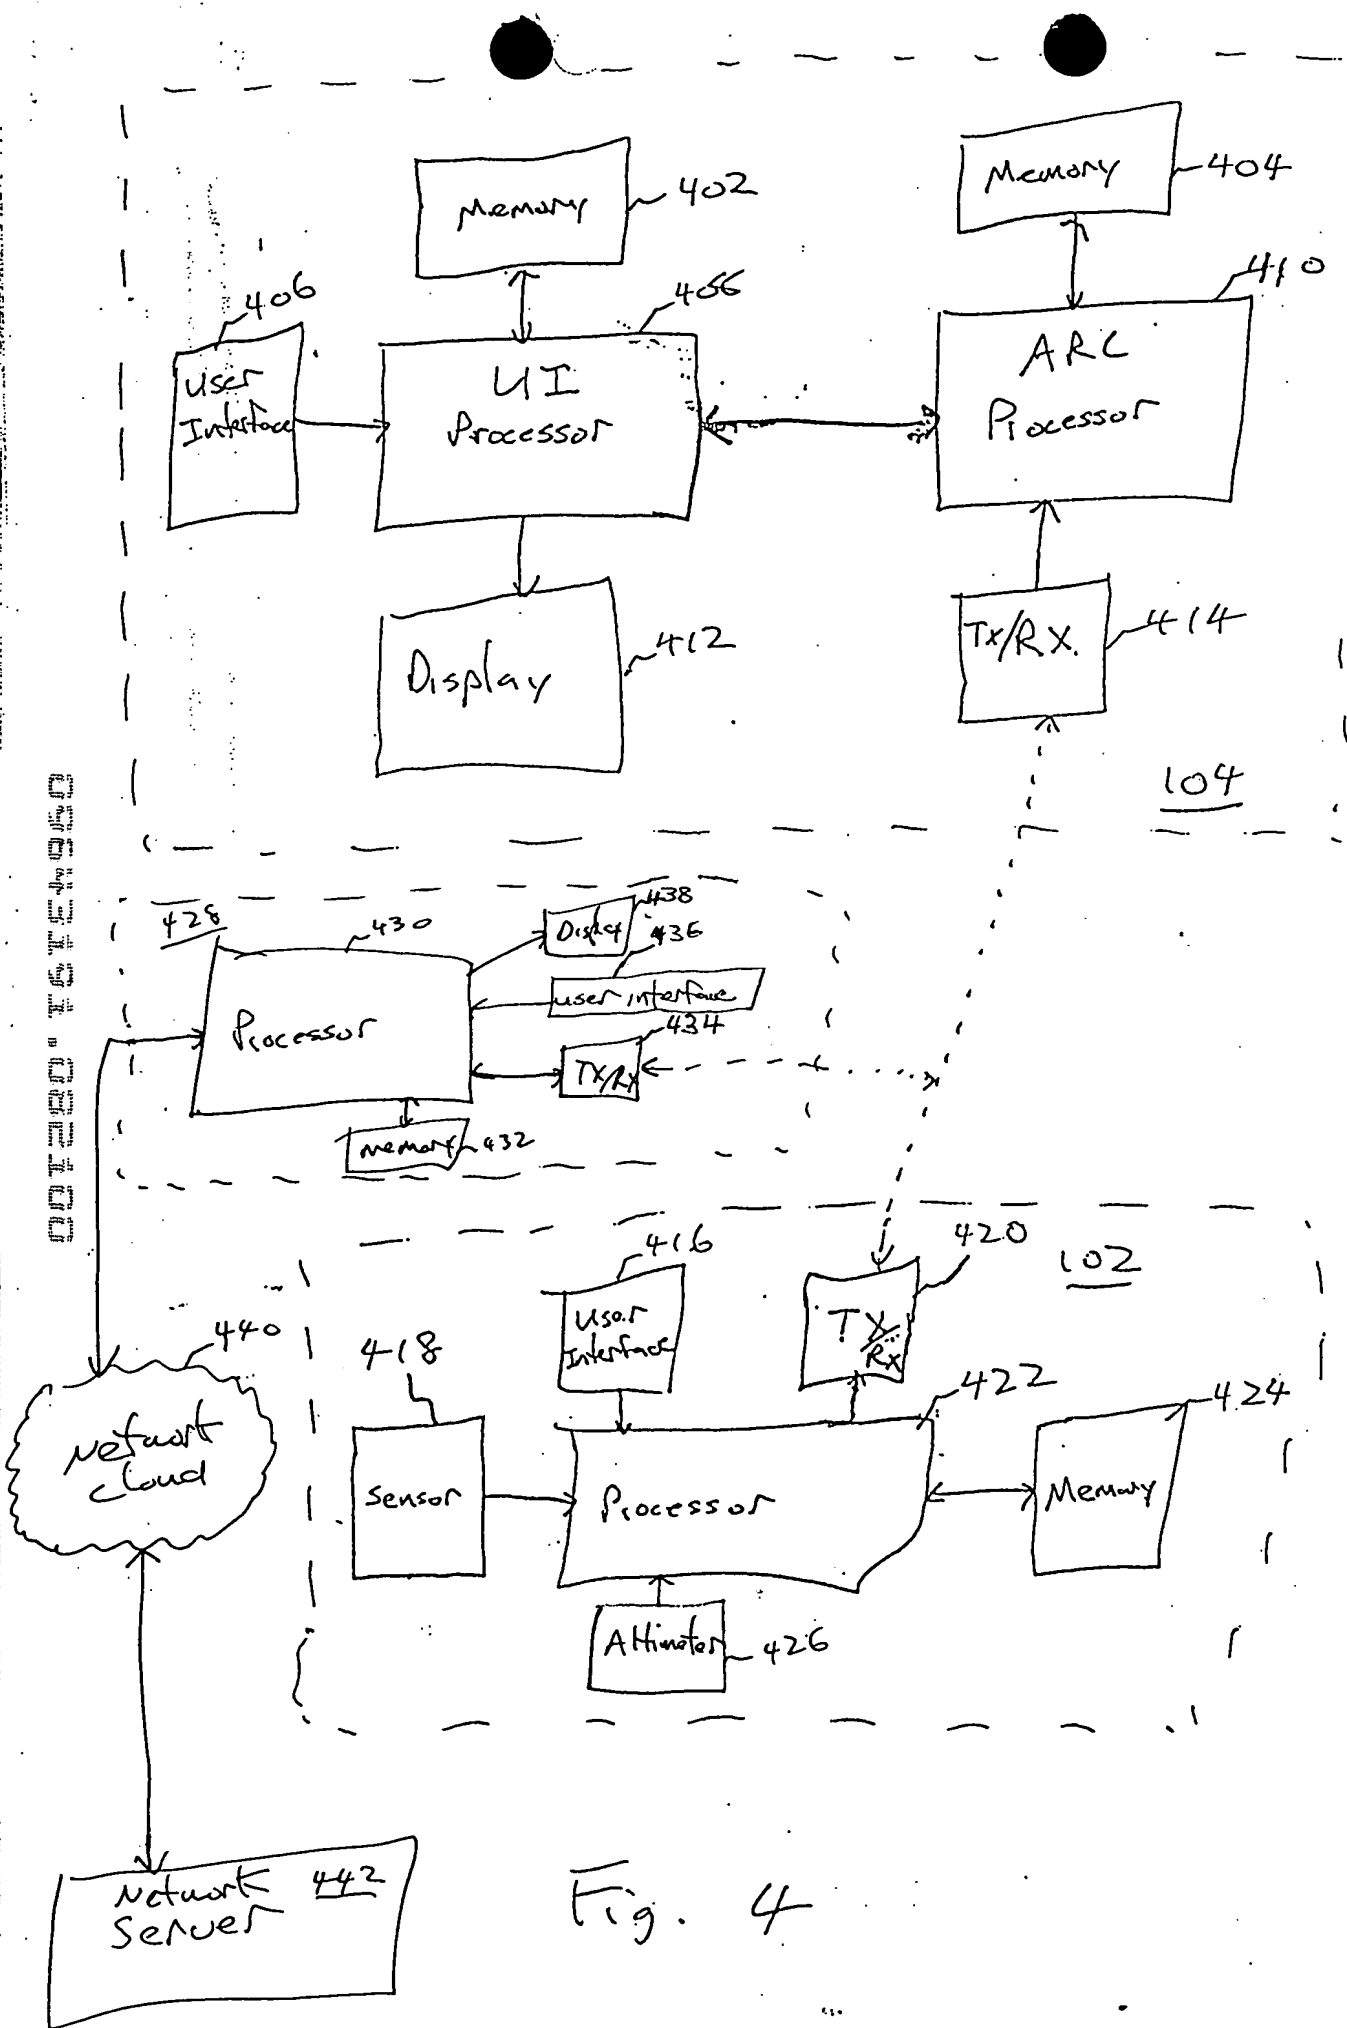 Memory
402
Memory
404
406
User
Interface
456
UI
Processor
410
ARC
Processor
Display
412
Tx/RX.
414
104
428
430
Processor
Display
438
436
user interface
434
TX/RX
memory
432
416
User
Interface
TX/
RX
420
102
418
Sensor
422
Processor
424
Memory
Altimeter
426
440
Network
Cloud
Network
Server
442
Fig. 4